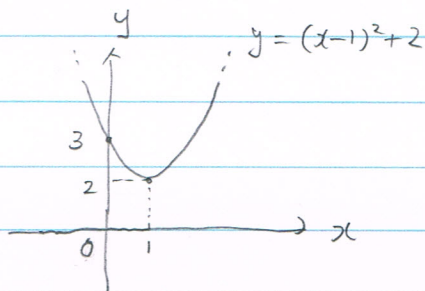 y
y = (x-1)²+2
3
2
0
1
x